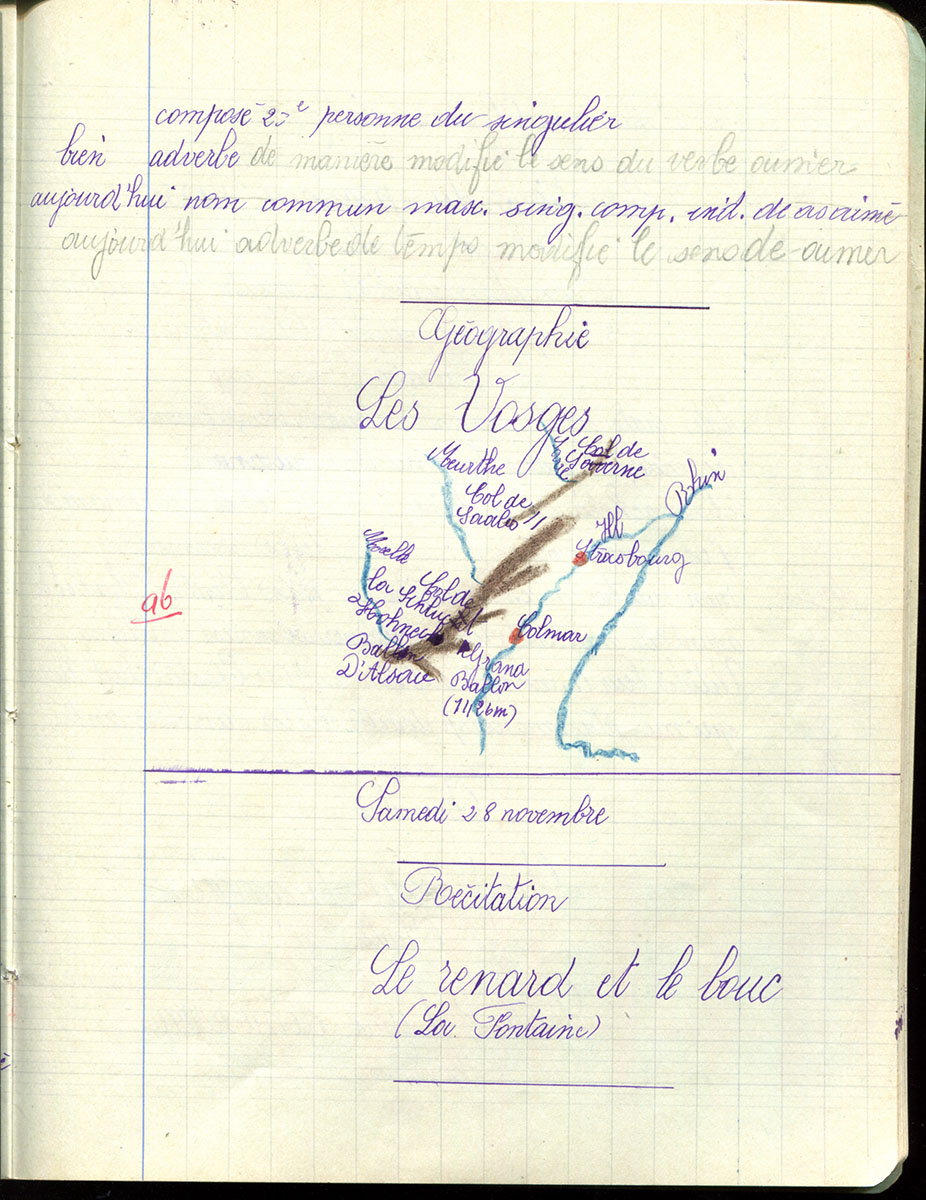 composé 2e personne du singulier
bien adverbe de manière modifie le sens du verbe aimer
aujourd'hui nom commun masc. sing. comp. ind. de as aimé
aujourd'hui adverbe de temps modifie le sens de aimer
Géographie
Les Vosges
Meurthe
Col de
Saverne
Col de
Saales
Rhin
Ill
Strasbourg
Moselle
Col de
la Schlucht
Hohneck
Colmar
Ballon
D'Alsace
Grand
Ballon
(1426m)
ab
Samedi 28 novembre
Récitation
Le renard et le bouc
(La Fontaine)